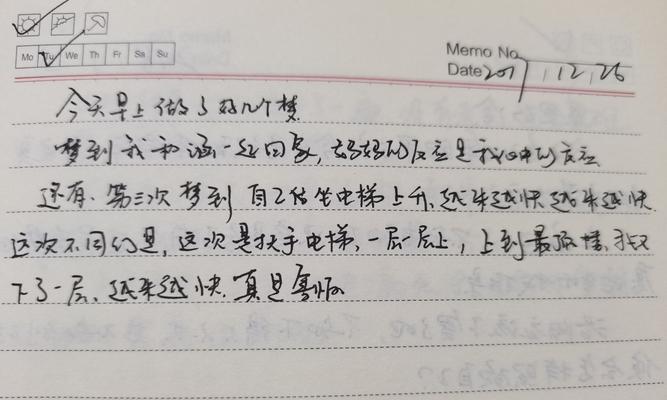 Mo Tu We Th Fr Sa Su
Memo No.
Date 2017.12.26
今天早上做了好几个梦
梦到我和涵一起回家，妈妈的反应是我心中的反应
还有，第三次梦到自己估坐电梯上升，越来越快越来越快
这次不同的是，这次是扶手电梯，一层一层上，上到最顶楼，我又
下了一层，越来越快，真是害怕